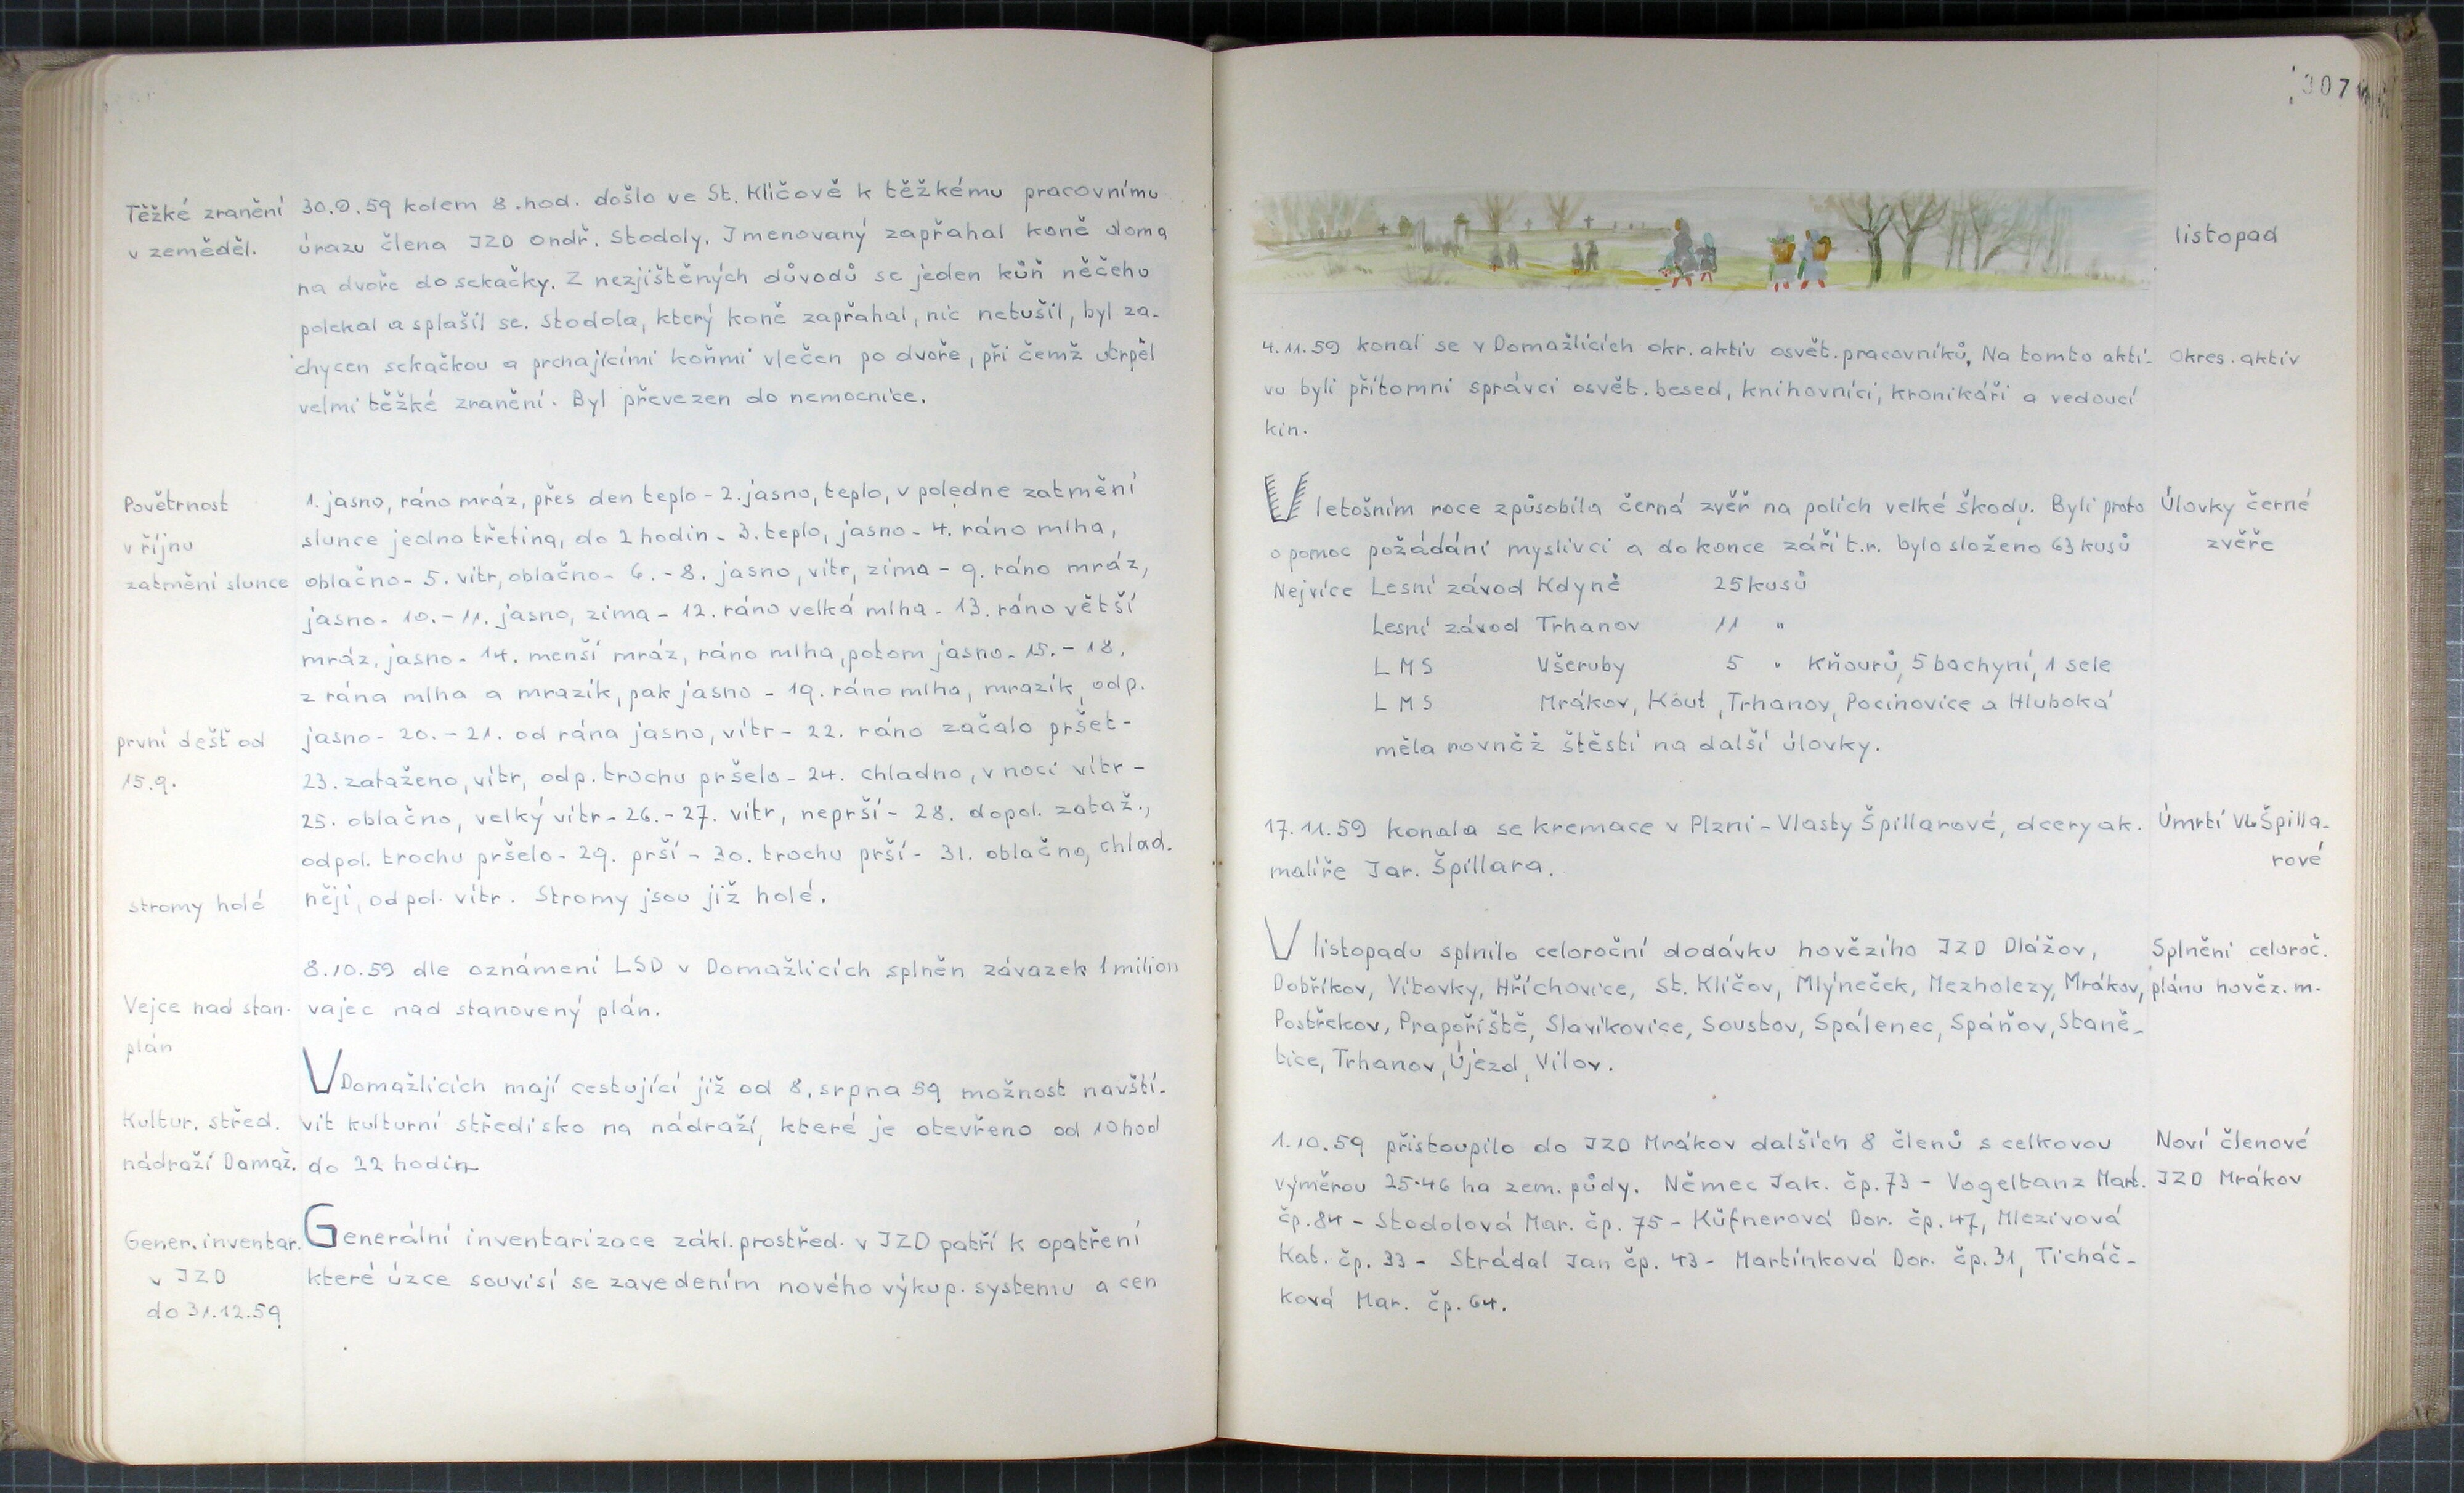 Těžké zranění
v zeměděl.
30.9.59 kolem 8.hod. došlo ve St. Kličově k těžkému pracovnímu
úrazu člena JZD Ondř. Stodoly. Jmenovaný zapřahal koně doma
na dvoře do sekačky. Z nezjištěných důvodů se jeden kůň něčeho
polekal a splašil se. Stodola, který koně zapřahal, nic netušil, byl za-
chycen sekačkou a prchajícími koňmi vlečen po dvoře, při čemž utrpěl
velmi těžké zranění. Byl převezen do nemocnice.
Povětrnost
v říjnu
zatmění slunce
1. jasno, ráno mráz, přes den teplo - 2. jasno, teplo, v poledne zatmění
slunce jedna třetina, do 2 hodin - 3. teplo, jasno - 4. ráno mlha,
oblačno - 5. vítr, oblačno - 6. - 8. jasno, vítr, zima - 9. ráno mráz,
jasno - 10. - 11. jasno, zima - 12. ráno velká mlha - 13. ráno větší
mráz, jasno - 14. menší mráz, ráno mlha, potom jasno - 15. - 18.
z rána mlha a mrazík, pak jasno - 19. ráno mlha, mrazík, odp.
první dešť od
15.9.
jasno - 20. - 21. od rána jasno, vítr - 22. ráno začalo pršet -
23. zataženo, vítr, odp. trochu pršelo - 24. chladno, v noci vítr -
25. oblačno, velký vítr - 26. - 27. vítr, neprší - 28. dopol. zataž.,
odpol. trochu pršelo - 29. prší - 30. trochu prší - 31. oblačno, chlad.
stromy holé
něji, odpol. vítr. Stromy jsou již holé.
8.10.59 dle oznámení LSD v Domažlicích splněn závazek 1 milion
Vejce nad stan.
plán
vajec nad stanovený plán.
V Domažlicích mají cestující již od 8. srpna 59 možnost navští-
Kultur. střed.
nádraží Domaž.
vit kulturní středisko na nádraží, které je otevřeno od 10 hod
do 22 hodin
Gener. inventar.
v JZD
do 31.12.59
Generální inventarizace zákl. prostřed. v JZD patří k opatření
které úzce souvisí se zavedením nového výkup. systemu a cen
307
listopad
4.11.59 konal se v Domažlicích okr. aktiv osvět. pracovníků. Na tomto akti-
vu byli přítomni správci osvět. besed, knihovníci, kronikáři a vedoucí
kin.
Okres. aktiv
V letošním roce způsobila černá zvěř na polích velké škody. Byli proto
o pomoc požádáni myslivci a do konce září t.r. bylo složeno 63 kusů
Úlovky černé
zvěře
Nejvíce Lesní závod Kdyně 25 kusů
Lesní závod Trhanov 11 "
L M S Všeruby 5 " kňourů, 5 bachyní, 1 sele
L M S Mrákov, Kout, Trhanov, Pocinovice a Hluboká
měla rovněž štěstí na další úlovky.
17.11.59 konala se kremace v Plzni - Vlasty Špillarové, dcery ak.
malíře Jar. Špillara.
Úmrtí Vl. Špilla-
rové
V listopadu splnilo celoroční dodávku hovězího JZD Dlážov,
Dobříkov, Vítovky, Hříchovice, St. Klíčov, Mlýneček, Mezholezy, Mrákov,
Postřekov, Prapořiště, Slavíkovice, Soustov, Spálenec, Spáňov, Staně-
tice, Trhanov, Újezd, Vílov.
Splnění celoroč.
plánu hověz. m.
1.10.59 přistoupilo do JZD Mrákov dalších 8 členů s celkovou
výměrou 25.46 ha zem. půdy. Němec Jak. čp. 73 - Vogeltanz Mart.
čp. 84 - Stodolová Mar. čp. 75 - Küfnerová Dor. čp. 47, Mlezivová
Kat. čp. 33 - Strádal Jan čp. 43 - Martínková Dor. čp. 31, Ticháč-
ková Mar. čp. 64.
Noví členové
JZD Mrákov